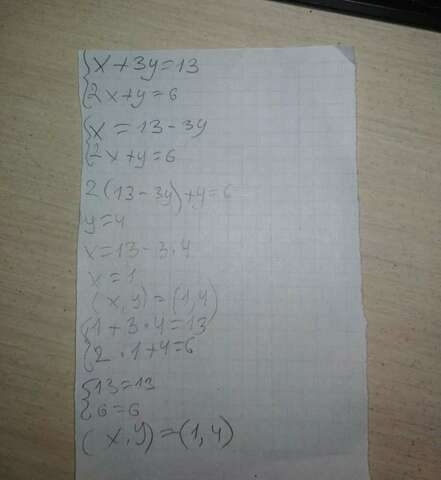 x+3y=13
2x+y=6
x=13-3y
2x+y=6
2(13-3y)+y=6
y=4
x=13-3·4
x=1
(x,y)=(1,4)
1+3·4=13
2·1+4=6
13=13
6=6
(x,y)=(1,4)